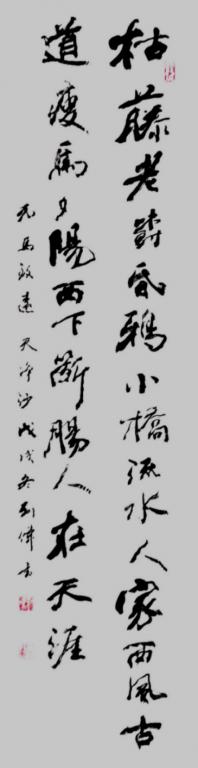 枯藤老樹昏鴉小橋流水人家西風古
道瘦馬夕陽西下斷腸人在天涯
元馬致遠天淨沙戊戌冬劉偉書